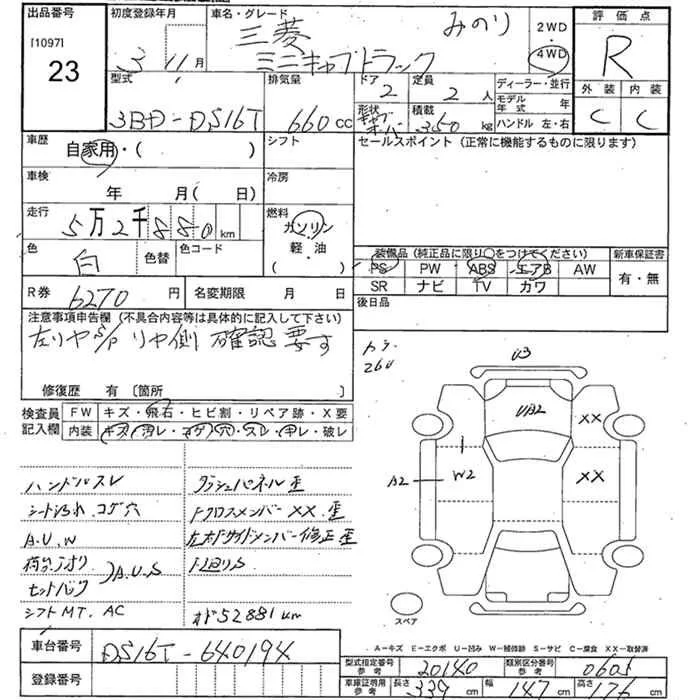 出品番号
[1097]
23
初度登録年月
3 11月
車名・グレード
三菱 みのり
ミニキャブトラック
2WD
・
4WD
評価点
R
外装 内装
C C
型式
3BD-DS16T
排気量
660 cc
ドア
2
定員
2 人
形状
積載
350 kg
ディーラー・並行
モデル年式 年
ハンドル 左・右
車歴
自家用・( )
シフト
セールスポイント (正常に機能するものに限ります)
車検
年 月(日)
冷房
走行
5万2千880 km
燃料
ガソリン
軽・油
( )
色
白
色替
色コード
装備品 (純正品に限り○をつけてください)
PS PW ABS エアB AW
SR ナビ TV カワ
新車保証書
有・無
R券
6270 円
名変期限 月 日
後日品
注意事項申告欄 (不具合内容等は具体的に記入して下さい)
左リヤS/P リヤ側 確認要す
修復歴 有 〔箇所
検査員
記入欄
FW キズ・飛石・ヒビ割・リペア跡・X要
内装 キズ・汚レ・コゲ穴・スレ・キレ・破レ
ハンドルスレ
シート汚れ コゲ穴
A.U.W
荷台アオリ
セットバック
A.U.S
シフトMT. AC
ダッシュパネル歪
トクロスメンバー XX.歪
左右ドサイドメンバー修正歪
オド52881km
260
U3
UA2
XX
A2
W2
XX
スペア
A-キズ E-エクボ U-凹み W-補修跡 S-サビ C-腐食 XX-取替済
車台番号
DS16T-640194
登録番号
型式指定番号
参考
20140
類別区分番号
参考
0605
車庫証明用
参考
長さ 339 cm
幅 147 cm
高さ 176 cm